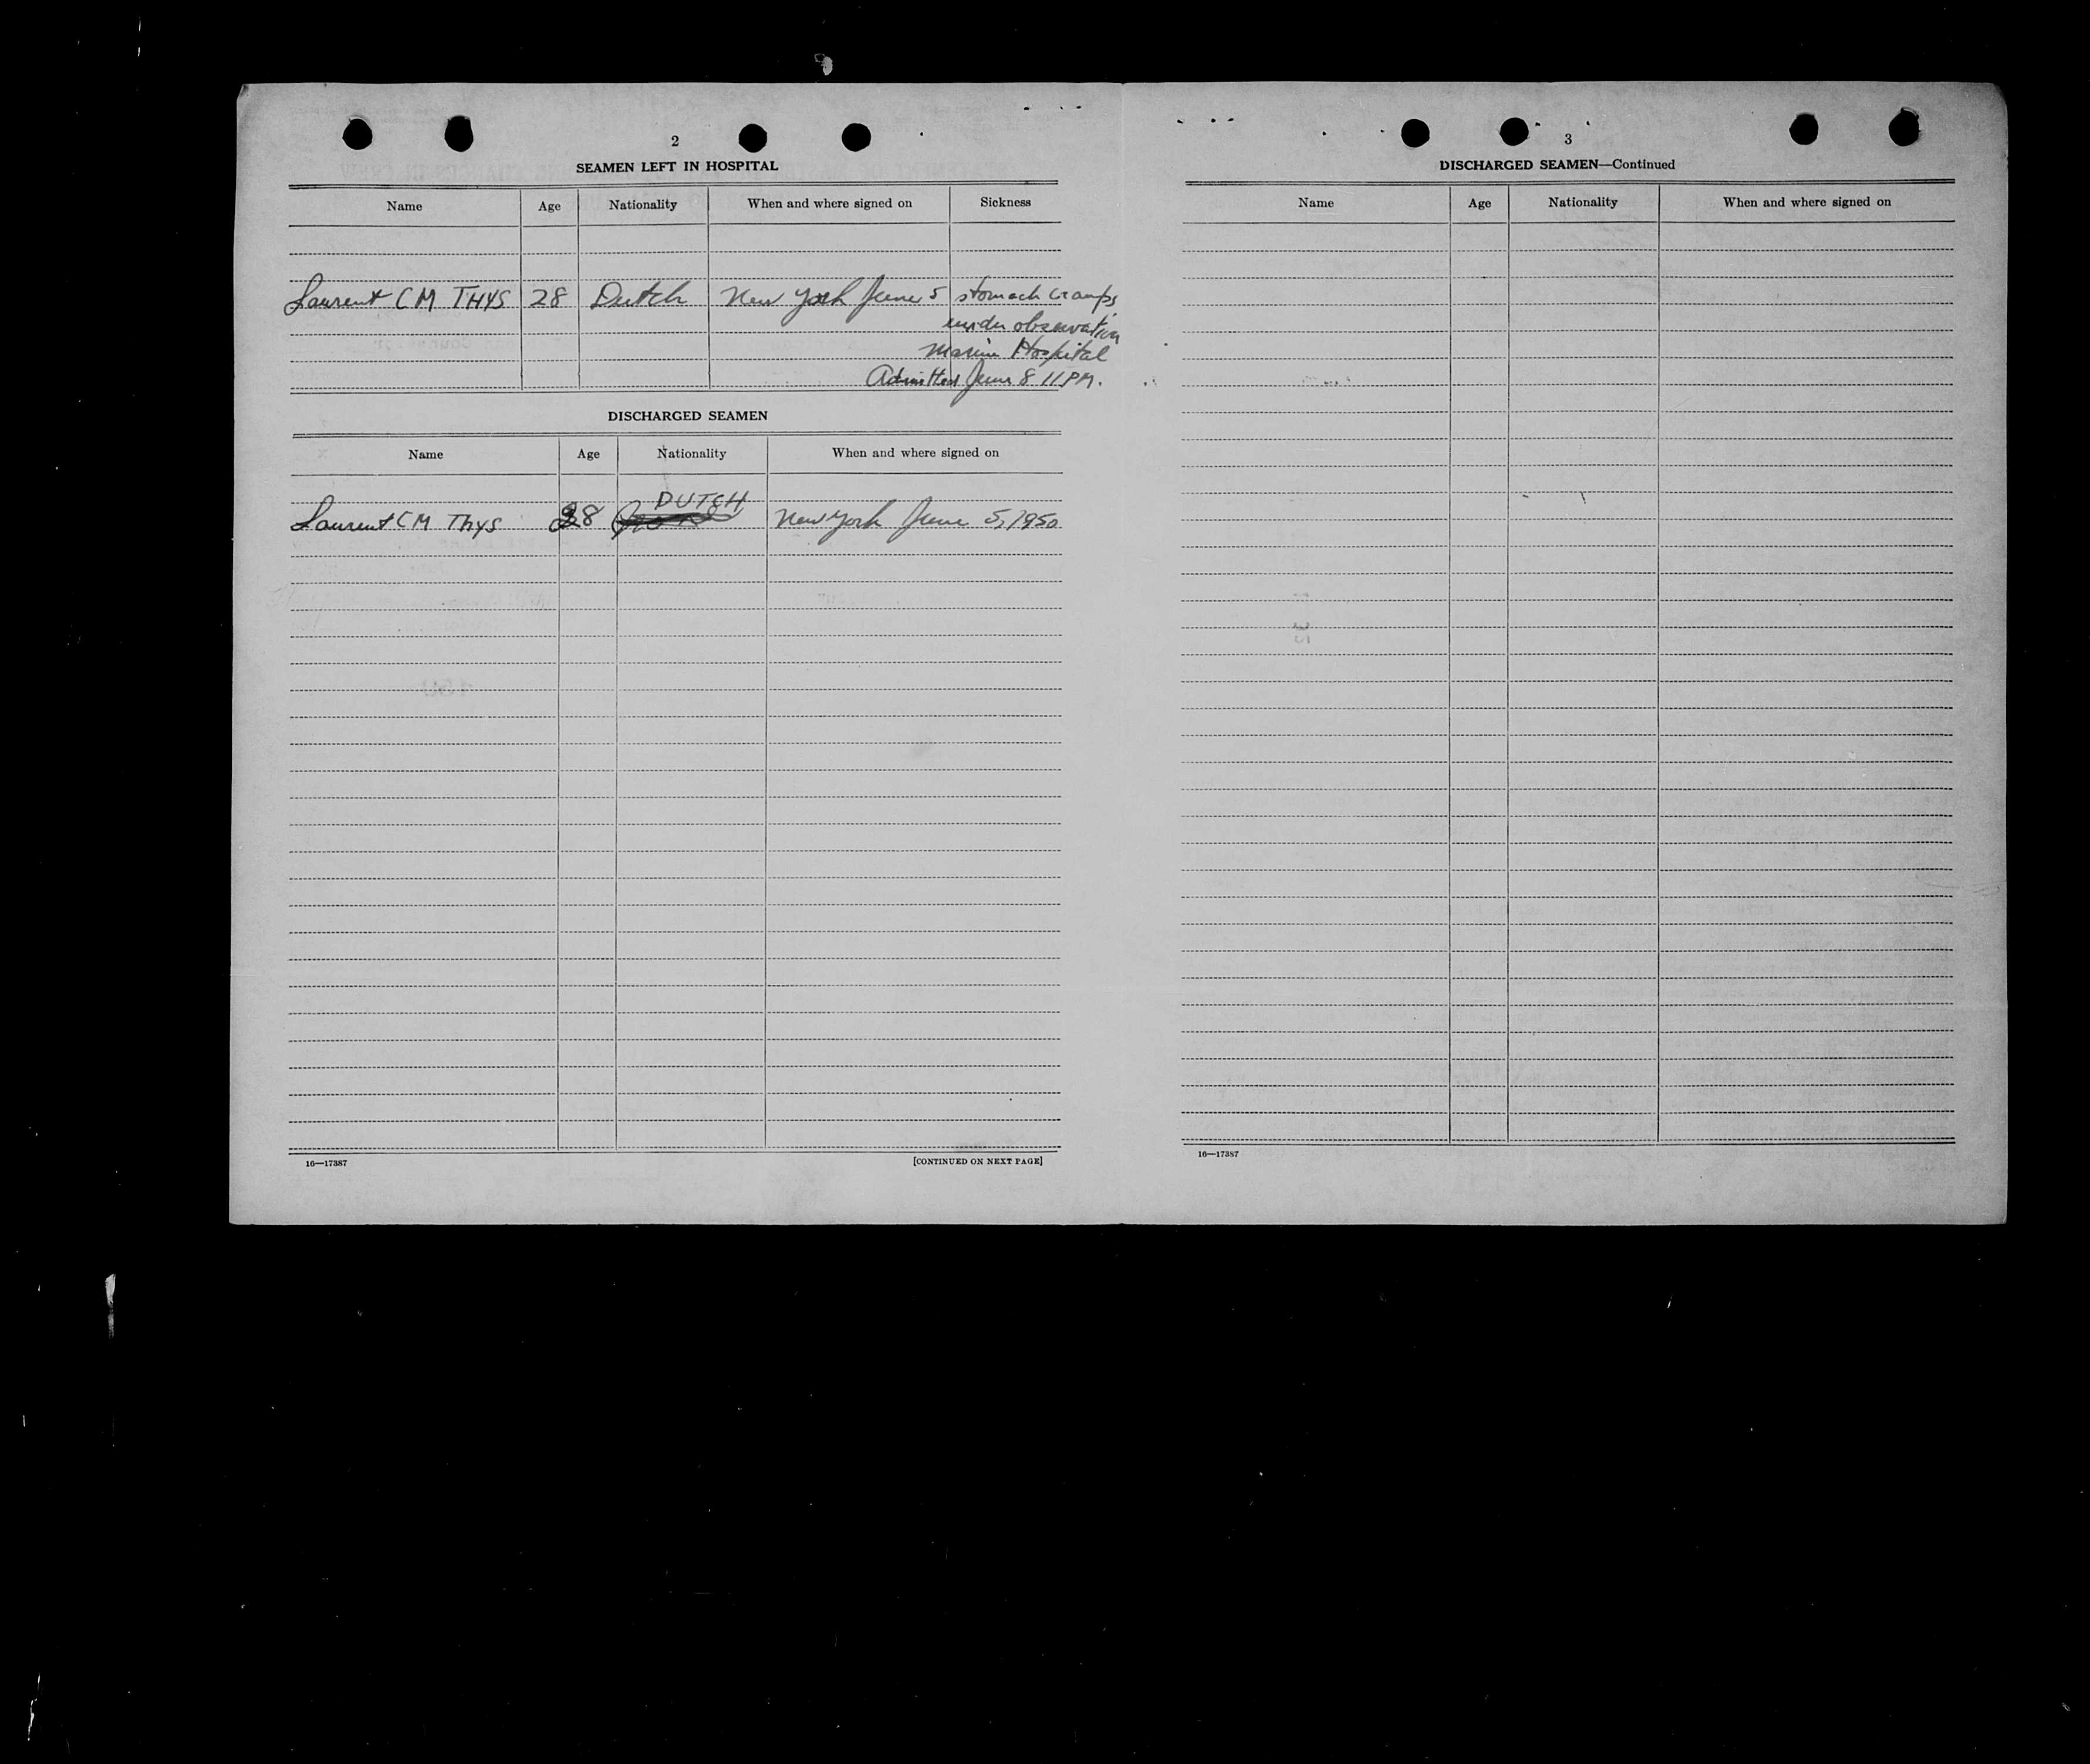 2
SEAMEN LEFT IN HOSPITAL
Name Age Nationality When and where signed on Sickness
Laurent C M THYS 28 Dutch New York June 5 stomach cramps
under observation
Marine Hospital
Admitted June 8 11 PM.
DISCHARGED SEAMEN
Name Age Nationality When and where signed on
DUTCH
Laurent C M Thys 28 New York June 5, 1950
16—17387 [CONTINUED ON NEXT PAGE]
3
DISCHARGED SEAMEN—Continued
Name Age Nationality When and where signed on
16—17387